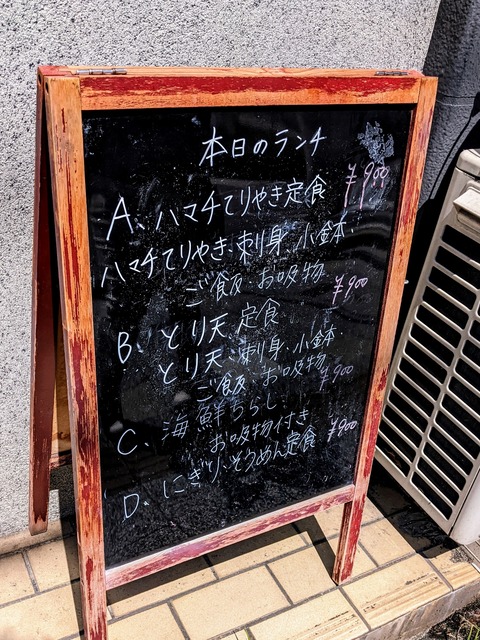 本日のランチ
A、ハマチてりやき定食 ¥900
ハマチてりやき、刺身、小鉢、
ご飯、お吸物
B、とり天定食 ¥900
とり天、刺身、小鉢、
ご飯、お吸物
C、海鮮ちらし ¥900
お吸物付き
D、にぎり、そうめん定食 ¥900